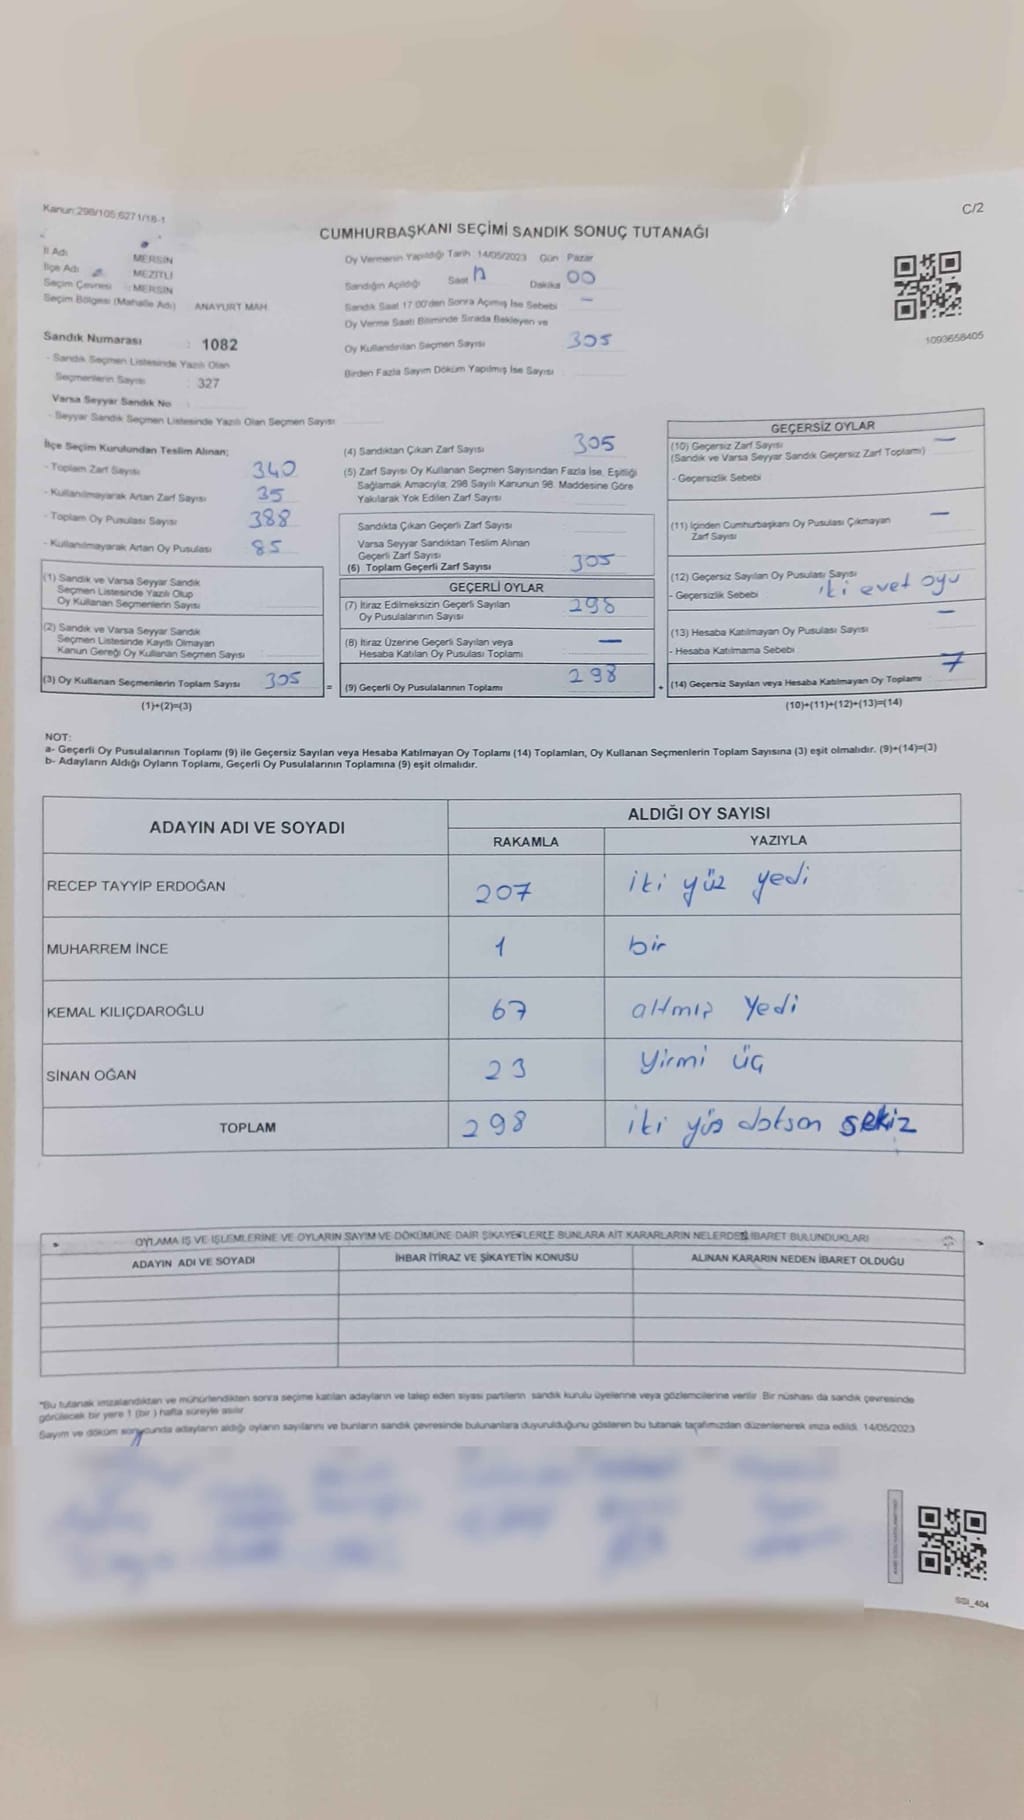 Kanun:298/105;6271/18-1
C/2
CUMHURBAŞKANI SEÇİMİ SANDIK SONUÇ TUTANAĞI
İl Adı MERSİN
İlçe Adı MEZİTLİ
Seçim Çevresi : MERSİN
Seçim Bölgesi (Mahalle Adı) ANAYURT MAH
Sandık Numarası : 1082
- Sandık Seçmen Listesinde Yazılı Olan
Seçmenlerin Sayısı : 327
Varsa Seyyar Sandık No
- Seyyar Sandık Seçmen Listesinde Yazılı Olan Seçmen Sayısı
Oy Vermenin Yapıldığı Tarih : 14/05/2023 Gün Pazar
Sandığın Açıldığı Saat 17 Dakika 00
Sandık Saat 17:00'den Sonra Açımış İse Sebebi —
Oy Verme Saati Bitiminde Sırada Bekleyen ve
Oy Kullandırılan Seçmen Sayısı 305
Birden Fazla Sayım Döküm Yapılmış İse Sayısı
1093658405
İlçe Seçim Kurulundan Teslim Alınan;
- Toplam Zarf Sayısı 340
- Kullanılmayarak Artan Zarf Sayısı 35
- Toplam Oy Pusulası Sayısı 388
- Kullanılmayarak Artan Oy Pusulası 85
(1) Sandık ve Varsa Seyyar Sandık
Seçmen Listesinde Yazılı Olup
Oy Kullanan Seçmenlerin Sayısı
(2) Sandık ve Varsa Seyyar Sandık
Seçmen Listesinde Kayıtlı Olmayan
Kanun Gereği Oy Kullanan Seçmen Sayısı
(3) Oy Kullanan Seçmenlerin Toplam Sayısı 305
(1)+(2)=(3)
(4) Sandıktan Çıkan Zarf Sayısı 305
(5) Zarf Sayısı Oy Kullanan Seçmen Sayısından Fazla İse, Eşitliği
Sağlamak Amacıyla; 298 Sayılı Kanunun 98. Maddesine Göre
Yakılarak Yok Edilen Zarf Sayısı
Sandıkta Çıkan Geçerli Zarf Sayısı
Varsa Seyyar Sandıktan Teslim Alınan
Geçerli Zarf Sayısı
(6) Toplam Geçerli Zarf Sayısı 305
GEÇERLİ OYLAR
(7) İtiraz Edilmeksizin Geçerli Sayılan
Oy Pusulalarının Sayısı 298
(8) İtiraz Üzerine Geçerli Sayılan veya
Hesaba Katılan Oy Pusulası Toplamı —
= (9) Geçerli Oy Pusulalarının Toplamı 298
GEÇERSİZ OYLAR
(10) Geçersiz Zarf Sayısı —
(Sandık ve Varsa Seyyar Sandık Geçersiz Zarf Toplamı)
- Geçersizlik Sebebi
(11) İçinden Cumhurbaşkanı Oy Pusulası Çıkmayan
Zarf Sayısı —
(12) Geçersiz Sayılan Oy Pusulası Sayısı
- Geçersizlik Sebebi iki evet oyu
(13) Hesaba Katılmayan Oy Pusulası Sayısı —
- Hesaba Katılmama Sebebi
+ (14) Geçersiz Sayılan veya Hesaba Katılmayan Oy Toplamı 7
(10)+(11)+(12)+(13)=(14)
NOT:
a- Geçerli Oy Pusulalarının Toplamı (9) ile Geçersiz Sayılan veya Hesaba Katılmayan Oy Toplamı (14) Toplamları, Oy Kullanan Seçmenlerin Toplam Sayısına (3) eşit olmalıdır. (9)+(14)=(3)
b- Adayların Aldığı Oyların Toplamı, Geçerli Oy Pusulalarının Toplamına (9) eşit olmalıdır.
ADAYIN ADI VE SOYADI ALDIĞI OY SAYISI
RAKAMLA YAZIYLA
RECEP TAYYİP ERDOĞAN 207 iki yüz yedi
MUHARREM İNCE 1 bir
KEMAL KILIÇDAROĞLU 67 altmış Yedi
SİNAN OĞAN 23 Yirmi üç
TOPLAM 298 iki yüz doksan sekiz
OYLAMA İŞ VE İŞLEMLERİNE VE OYLARIN SAYIM VE DÖKÜMÜNE DAİR ŞİKAYETLERLE BUNLARA AİT KARARLARIN NELERDEN İBARET BULUNDUKLARI
ADAYIN ADI VE SOYADI İHBAR İTİRAZ VE ŞİKAYETİN KONUSU ALINAN KARARIN NEDEN İBARET OLDUĞU
*Bu tutanak imzalandıktan ve mühürlendikten sonra seçime katılan adayların ve talep eden siyasi partilerin sandık kurulu üyelerine veya gözlemcilerine verilir. Bir nüshası da sandık çevresinde
görülecek bir yere 1 (bir) hafta süreyle asılır.
Sayım ve döküm sonucunda adayların aldığı oyların sayılarını ve bunların sandık çevresinde bulunanlara duyurulduğunu gösteren bu tutanak tarafımızdan düzenlenerek imza edildi. 14/05/2023
SGI_404